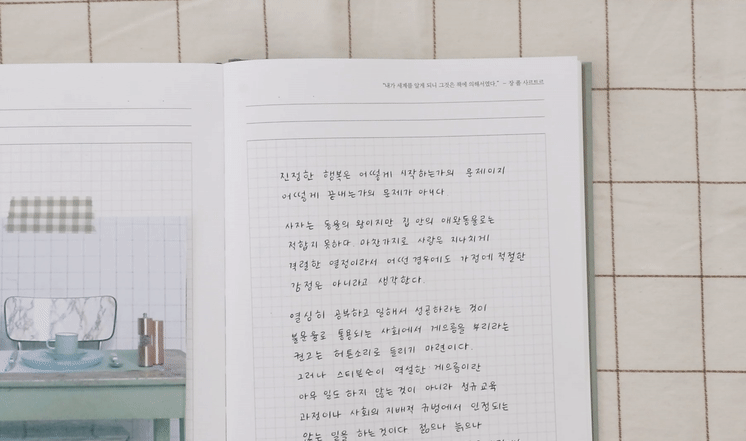 "내가 세계를 알게 되니 그것은 책에 의해서였다." - 장 폴 사르트르
진정한 행복은 어떻게 시작하는가의 문제이지
어떻게 끝내는가의 문제가 아니다
사자는 동물의 왕이지만 집 안의 애완동물로는
적합지 못하다. 마찬가지로 사랑은 지나치게
격렬한 열정이라서 어떤 경우에도 가정에 적절한
감정은 아니라고 생각한다.
열심히 공부하고 일해서 성공하라는 것이
불문율로 통용되는 사회에서 게으름을 부리라는
권고는 허튼소리로 들리기 마련이다.
그러나 스티븐슨이 역설한 게으름이란
아무 일도 하지 않는 것이 아니라 정규교육
과정이나 사회의 지배적 규범에서 인정되는
않는 일을 하는 것이다. 젊으나 늙으나